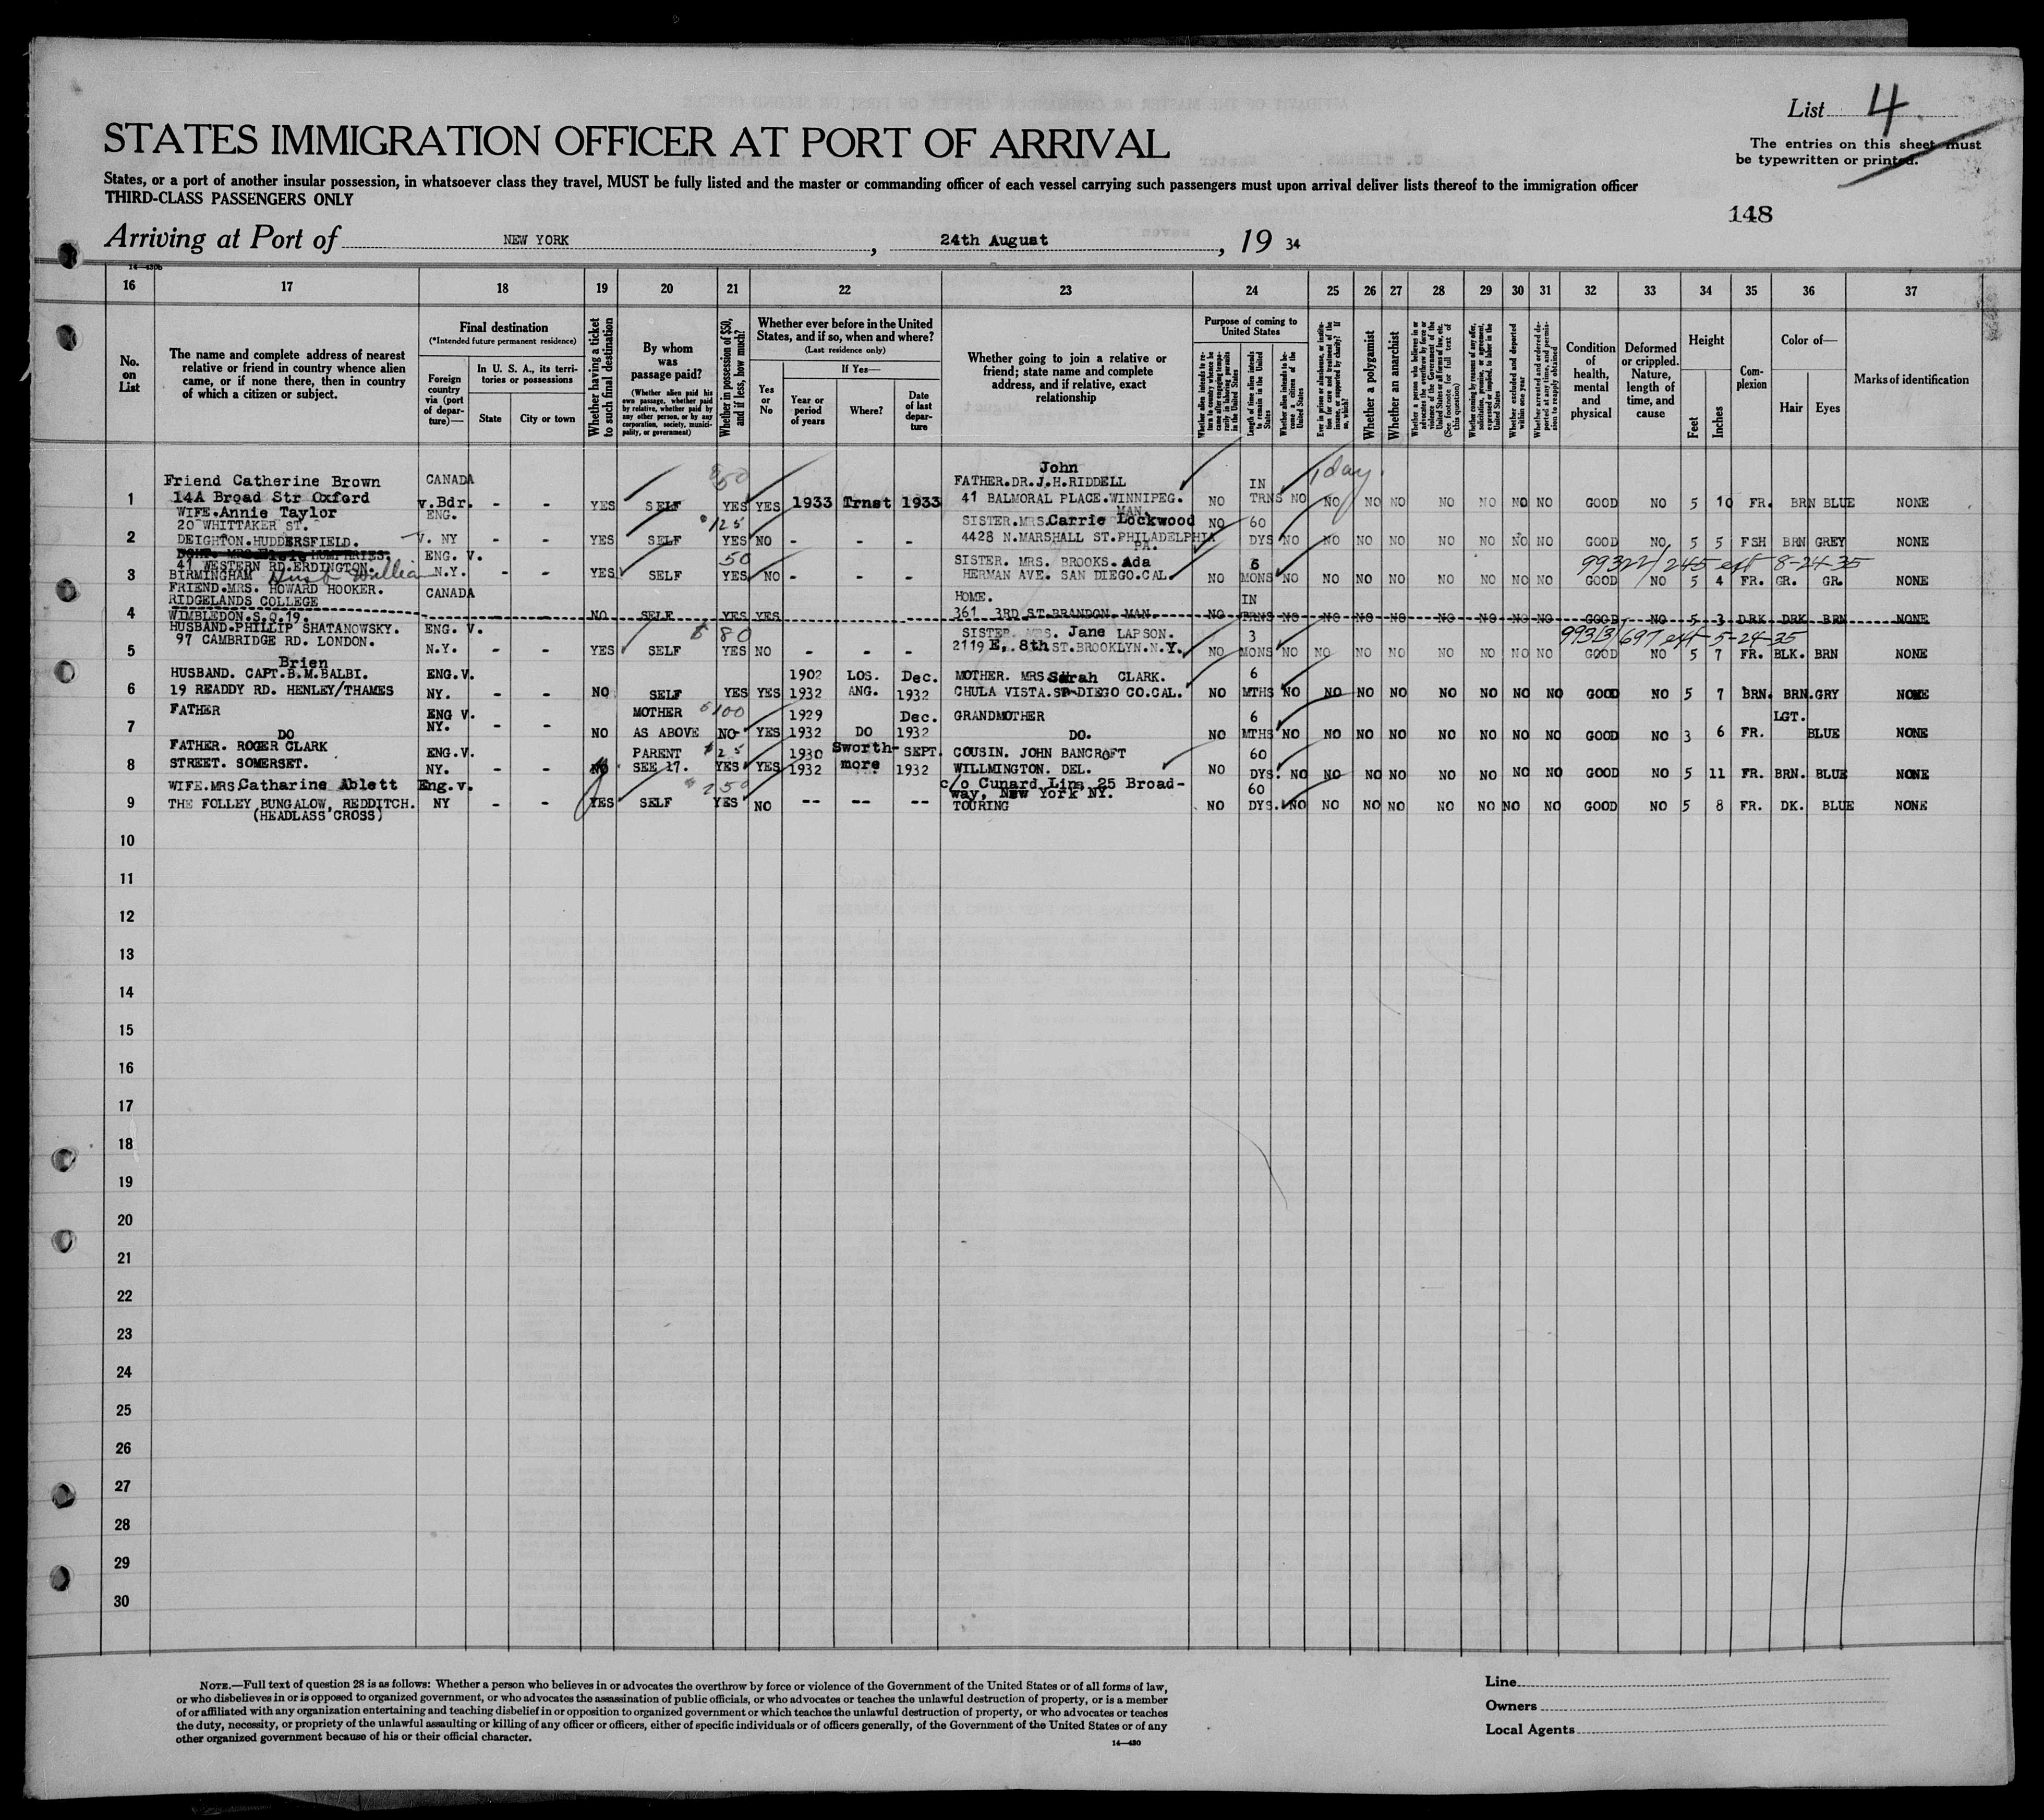 List 4
STATES IMMIGRATION OFFICER AT PORT OF ARRIVAL
The entries on this sheet must
be typewritten or printed.
States, or a port of another insular possession, in whatsoever class they travel, MUST be fully listed and the master or commanding officer of each vessel carrying such passengers must upon arrival deliver lists thereof to the immigration officer
THIRD-CLASS PASSENGERS ONLY
148
Arriving at Port of NEW YORK, 24th August, 19 34
14-430b
16 17 18 19 20 21 22 23 24 25 26 27 28 29 30 31 32 33 34 35 36 37
No. on List
The name and complete address of nearest relative or friend in country whence alien came, or if none there, then in country of which a citizen or subject.
Final destination
(*Intended future permanent residence)
Foreign country via (port of departure)—
In U. S. A., its territories or possessions
State
City or town
Whether having a ticket to such final destination
By whom was passage paid?
(Whether alien paid his own passage, whether paid by relative, whether paid by any other person, or by any corporation, society, municipality, or government)
Whether in possession of $50, and if less, how much?
Whether ever before in the United States, and if so, when and where?
(Last residence only)
Yes or No
If Yes—
Year or period of years
Where?
Date of last departure
Whether going to join a relative or friend; state name and complete address, and if relative, exact relationship
Purpose of coming to United States
Length of time alien intends to remain in the United States
Whether alien intends to become a citizen of the United States
Whether a polygamist
Whether an anarchist
Whether excluded and deported within one year
Condition of health, mental and physical
Deformed or crippled. Nature, length of time, and cause
Height
Feet
Inches
Complexion
Color of—
Hair
Eyes
Marks of identification
Friend Catherine Brown CANADA 50 John FATHER.DR.J.H.RIDDELL IN 1 day
1 14A Broad Str Oxford v.Bdr. - - YES SELF YES YES 1933 Trnst 1933 41 BALMORAL PLACE.WINNIPEG. MAN. NO TRNS NO NO NO NO NO NO NO NO GOOD NO 5 10 FR. BRN BLUE NONE
WIFE.Annie Taylor ENG. $125 SISTER.MRS.Carrie Lockwood NO 60
20 WHITTAKER ST.
2 DEIGHTON.HUDDERSFIELD. V. NY - - YES SELF YES NO - - - 4428 N.MARSHALL ST.PHILADELPHIA PA. DYS NO NO NO NO NO NO NO NO GOOD NO 5 5 FSH BRN GREY NONE
DGHT. MRS Elsie HUMPHRIES. ENG. V. 50 SISTER. MRS. BROOKS. Ada 6 99322/245 ext 8-24-35
41 WESTERN RD.ERDINGTON.
3 BIRMINGHAM Husb William N.Y. - - YES SELF YES NO - - - HERMAN AVE. SAN DIEGO.CAL. NO MONS NO NO NO NO NO NO NO NO GOOD NO 5 4 FR. GR. GR. NONE
FRIEND.MRS. HOWARD HOOKER. CANADA HOME. IN
RIDGELANDS COLLEGE
4 WIMBLEDON.S.O.19. NO SELF YES YES 361 3RD ST.BRANDON. MAN. NO TRNS NO NO NO NO NO NO NO NO GOOD NO 5 3 DRK DRK BRN NONE
HUSBAND.PHILLIP SHATANOWSKY. ENG. V. $80 SISTER. MRS. Jane LAPSON. 3 99313/697 ext 5-24-35
5 97 CAMBRIDGE RD. LONDON. N.Y. - - YES SELF YES NO - - - 2119 E, 8th ST.BROOKLYN.N.Y. NO MONS NO NO NO NO NO NO NO NO GOOD NO 5 7 FR. BLK. BRN NONE
Brien
HUSBAND. CAPT.B.M.BALBI. ENG.V. 1902 LOS. Dec. MOTHER. MRS Sarah CLARK. 6
6 19 READDY RD. HENLEY/THAMES NY. - - NO SELF YES YES 1932 ANG. 1932 CHULA VISTA.SN DIEGO CO.CAL. NO MTHS NO NO NO NO NO NO NO NO GOOD NO 5 7 BRN. BRN. GRY NONE
FATHER ENG V. MOTHER $100 1929 Dec. GRANDMOTHER 6 LGT.
7 DO NY. - - NO AS ABOVE NO YES 1932 DO 1932 DO. NO MTHS NO NO NO NO NO NO NO NO GOOD NO 3 6 FR. BLUE NONE
FATHER. ROGER CLARK ENG.V. PARENT $25 1930 Sworth- SEPT. COUSIN. JOHN BANCROFT 60
8 STREET. SOMERSET. NY. - - NO SEE 17. YES YES 1932 more 1932 WILLMINGTON. DEL. NO DYS. NO NO NO NO NO NO NO NO GOOD NO 5 11 FR. BRN. BLUE NONE
WIFE.MRS.Catharine Ablett Eng.v. $250 c/o Cunard Line 25 Broad-
way, New York NY. 60
9 THE FOLLEY BUNGALOW, REDDITCH. NY - - YES SELF YES NO -- -- -- TOURING NO DYS. NO NO NO NO NO NO NO NO GOOD NO 5 8 FR. DK. BLUE NONE
(HEADLASS CROSS)
10
11
12
13
14
15
16
17
18
19
20
21
22
23
24
25
26
27
28
29
30
NOTE.—Full text of question 28 is as follows: Whether a person who believes in or advocates the overthrow by force or violence of the Government of the United States or of all forms of law,
or who disbelieves in or is opposed to organized government, or who advocates the assassination of public officials, or who advocates or teaches the unlawful destruction of property, or is a member
of or affiliated with any organization entertaining and teaching disbelief in or opposition to organized government or which teaches the unlawful destruction of property, or who advocates or teaches
the duty, necessity, or propriety of the unlawful assaulting or killing of any officer or officers, either of specific individuals or of officers generally, of the Government of the United States or of any
other organized government because of his or their official character.
14—430
Line
Owners
Local Agents